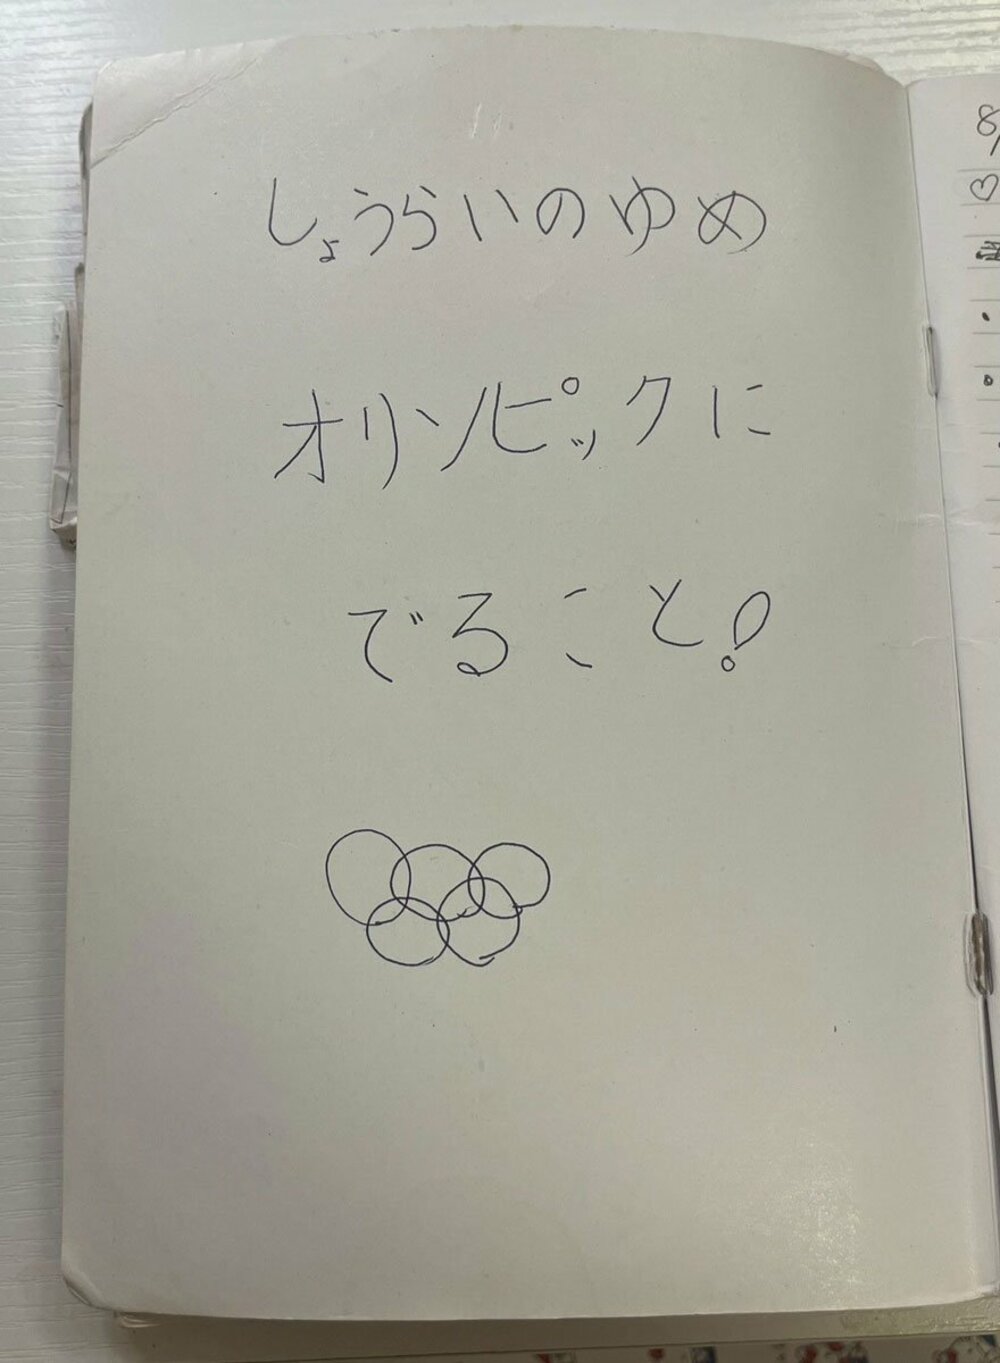 しょうらいのゆめ
オリンピックに
でること!
8/
♡